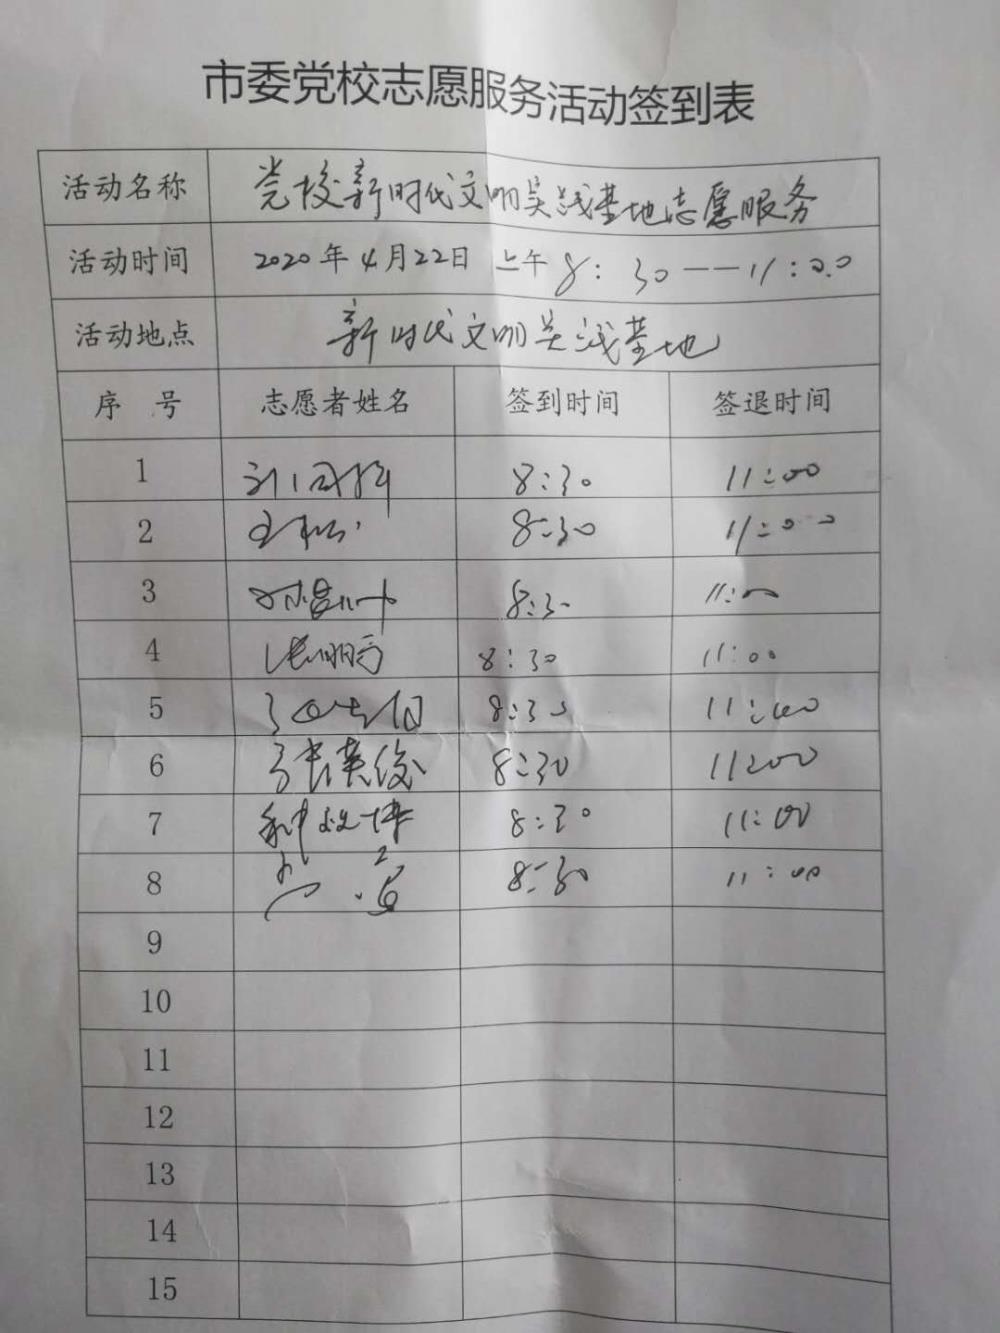 市委党校志愿服务活动签到表
活动名称 党校新时代文明实践基地志愿服务
活动时间 2020年4月22日 上午8:30——11:00
活动地点 新时代文明实践基地
序号 志愿者姓名 签到时间 签退时间
1 8:30 11:00
2 8:30 11:00
3 8:30 11:00
4 张明芳 8:30 11:00
5 8:30 11:00
6 张英俊 8:30 11:00
7 8:30 11:00
8 8:30 11:00
9
10
11
12
13
14
15